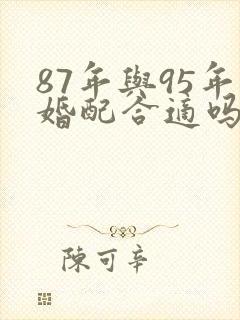 87年與95年
婚配合適吗
陳可辛